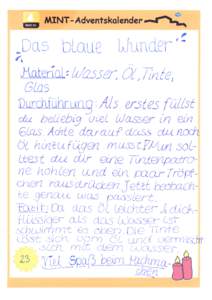 MINT-Adventskalender
Das blaue Wunder
Material: Wasser, Öl, Tinte,
Glas
Durchführung: Als erstes füllst
du beliebig viel Wasser in ein
Glas Achte darauf dass du noch
Öl hinzufügen musst! Nun sol-
ltest du dir eine Tintenpatro-
ne hohlen und ein paar Tröpf-
chen rausdrücken. Jetzt beobach-
te genau was passiert.
Fazit: Da das Öl leichter & dich-
flüssiger als das Wasser ist
schwimmt es oben. Die Tinte
lässt sich vom Öl und vermischt
sich mit dem Wasser.
23
Viel Spaß beim Nachma-
chen